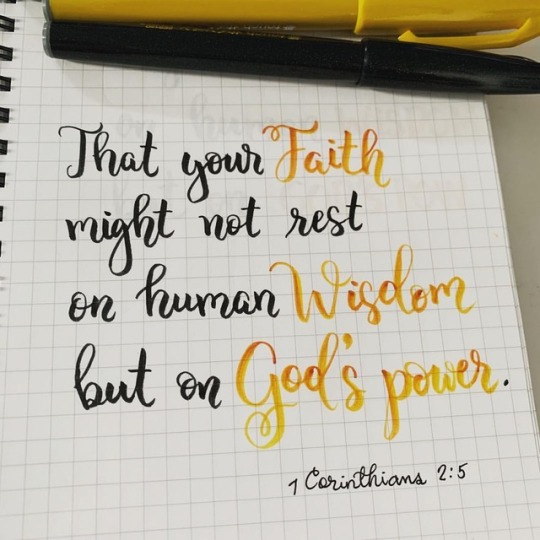 That your Faith
might not rest
on human Wisdom
but on God's power.
1 Corinthians 2:5